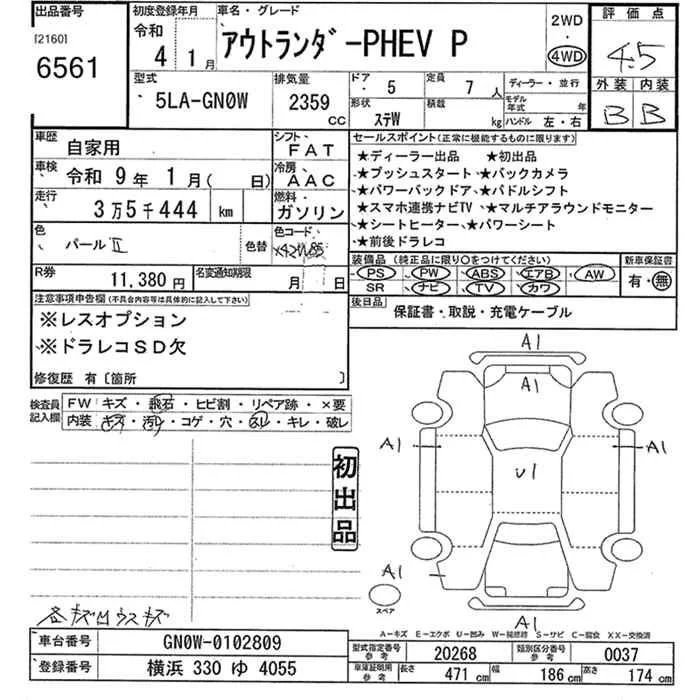 出品番号
[2160]
6561
初度登録年月
令和
4 1月
車名・グレード
アウトランダ゛-PHEV P
2WD
・
4WD
評価点
4.5
外装 内装
B B
型式
5LA-GN0W
排気量
2359
CC
ドア 5
定員 7人
形状 ステW
積載 kg
ディーラー・並行
モデル年式 年
ハンドル 左・右
車歴 自家用
シフト FAT
車検 令和 9年 1月( 日)
冷房 AAC
走行 3万5千444 km
燃料 ガソリン
色 パールⅡ
色替
色コード
R券 11,380円
名変通知期限 月 日
セールスポイント(正常に機能するものに限ります)
★ディーラー出品 ★初出品
★プッシュスタート★バックカメラ
★パワーバックドア★パドルシフト
★スマホ連携ナビTV ★マルチアラウンドモニター
★シートヒーター★パワーシート
★前後ドラレコ
装備品 (純正品に限り○をつけてください)
PS・PW・ABS・エアB・AW
SR ナビ・TV・カワ
新車保証書
有・無
後日品 保証書・取説・充電ケーブル
注意事項申告欄(不具合内容等は具体的に記入して下さい)
※レスオプション
※ドラレコSD欠
修復歴 有〔箇所 〕
検査員記入欄
FW キズ・飛石・ヒビ割・リペア跡・×要
内装 キズ・汚れ・コゲ・穴・スレ・キレ・破レ
初出品
A1
A1
A1
A1
U1
A1
スペア
A1
A-キズ E-エクボ U-凹み W-補修跡 S-サビ C-腐食 XX-交換済
車台番号 GN0W-0102809
登録番号 横浜 330 ゆ 4055
型式指定番号 参考 20268
類別区分番号 参考 0037
車庫証明用 参考 長さ 471cm 幅 186cm 高さ 174cm